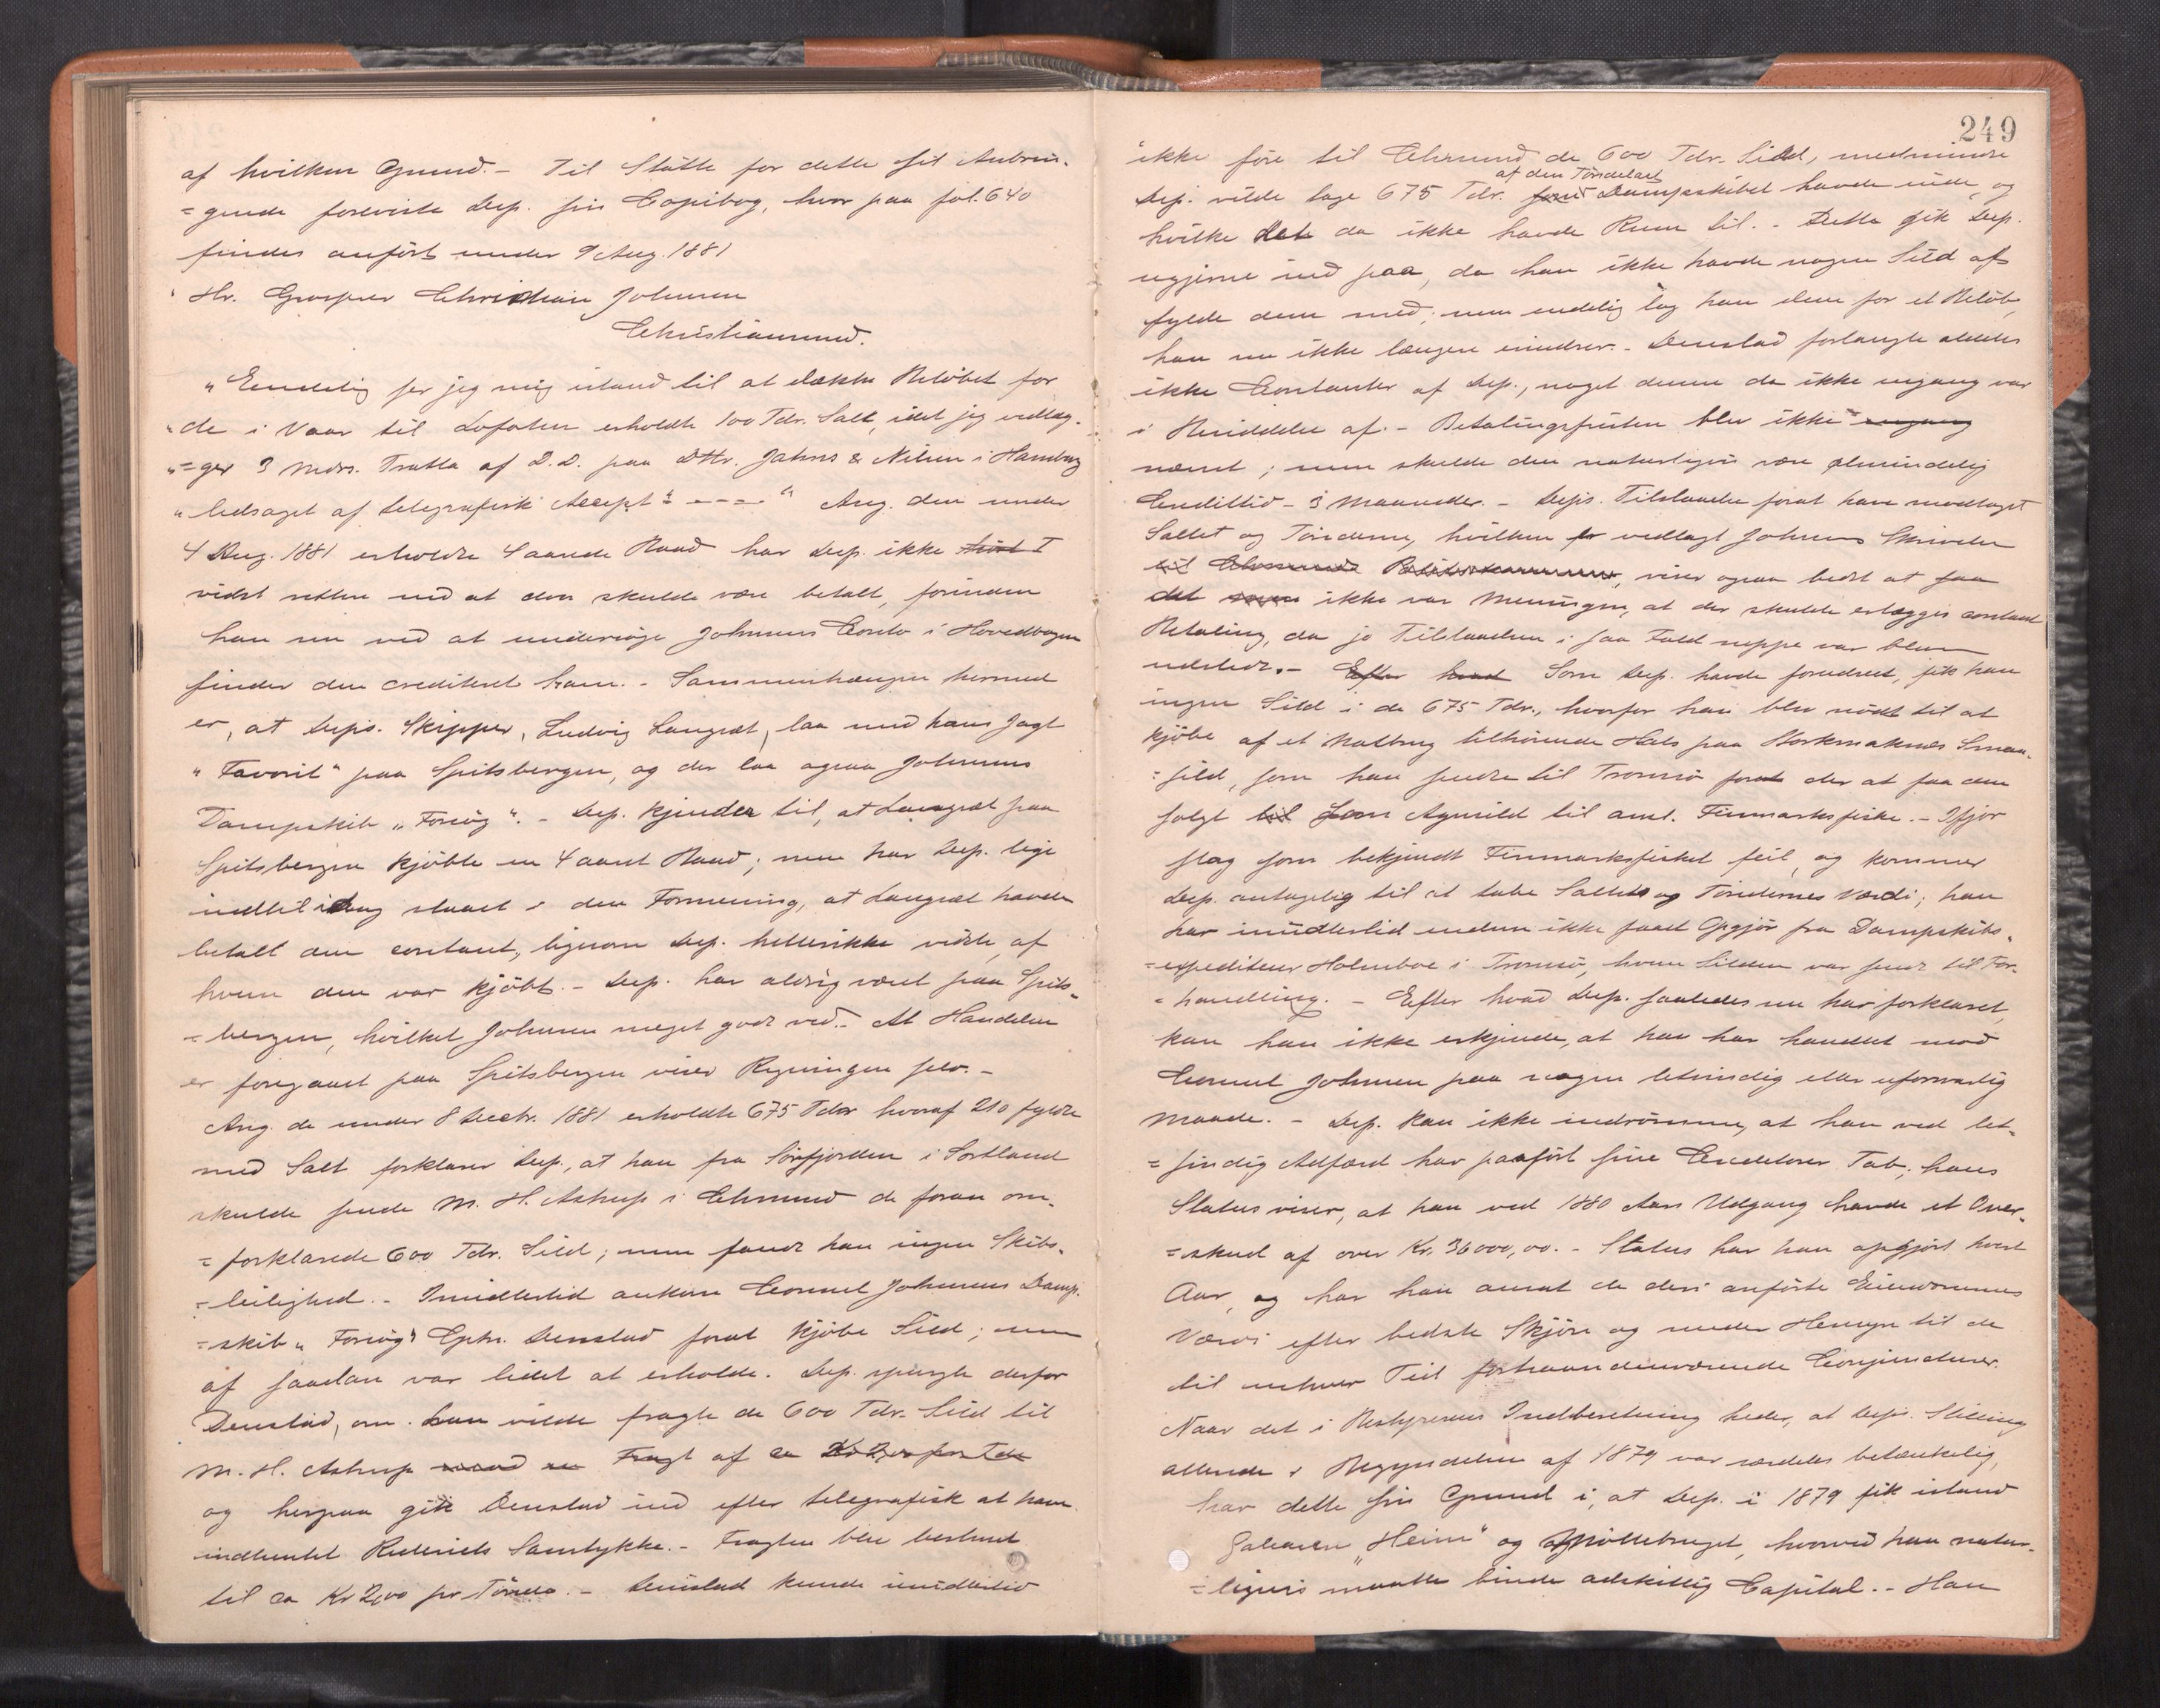 af hvilken Grund. - Til Støtte for dette sit Anbrin-
=gende foreviste Dep. sin Copibog, hvor paa fol. 640
findes anført under 9 Aug. 1881
" Hr. Grosserer Christian Johnsen
Christianssund.
" Eendelig ser jeg mig istand til at dække Beløbet for
" de i Vaar til Lofoten erholdte 100 Tdr. Salt, idet jeg vedlæg-
" =ger 3 Mdrs. Tratta af D.D. paa DHr. Jahns & Nilsen i Hamburg
" ledsaget af telegrafisk Accept" ---- " Ang. den under
4 Aug. 1881 erholdte 4 aarede Baad har Dep. ikke havt I
vidst rettere end at den skulde være betalt, forinden
han nu ved at undersøge Johnsens Conto i Hovedbogen
finder den crediteret ham. - Sammenhængen hermed
er, at Deps. Skipper, Ludvig Langset, laa med hans Jagt
" Favorit" paa Spitsbergen, og der laa ogsaa Johnsens
Dampskib "Forsøg". - Dep. kjender til, at Langset paa
Spitsbergen kjøbte en 4 aaret Baad; men har Dep. lige
indtil idag staaet i den Formening, at Langset havde
betalt den contant, ligesom Dep. hellerikke vidste, af
hvem den var kjøbt. - Dep. har aldrig været paa Spits-
=bergen, hvilket Johnsen meget godt ved. - At Handelen
er foregaaet paa Spitsbergen viser Regningen selv. -
Ang. de under 8 Decbr. 1881 erholdte 675 Tdr hvoraf 210 fyldte
med Salt forklarer Dep., at han fra Sørfjorden i Sortland
skulde sende M. H. Astrup i Chrsund de foran om-
=forklarede 600 Tdr. Sild; men fandt han ingen Skibs-
=leilighed. - Imidlertid ankom Consul Johnsens Damp-
=skib "Forsøg" Cptn. Denstad forat kjøbe Sild; men
af saadan var lidet at erholde. Dep. spurgte derfor
Denstad, om han vilde fragte de 600 Tdr. Sild til
M. H. Astrup mod en Fragt af ca Kr 2,00 per Tde
og herpaa gik Denstad ind efter telegrafisk at have
indhentet Rederiets Samtykke. - Fragten blev bestemt
til ca Kr 2,00 pr Tønde. - Denstad kunde imidlertid
249
ikke føre til Chrsund de 600 Tdr. Sild, medmindre
af den Tøndelast
Dep. vilde tage 675 Tdr. som Dampskibet havde inde, og
hvilke det da ikke havde Rum til. - Dette gik Dep.
ugjerne ind paa, da han ikke havde nogen Sild at
fylde dem med; men endelig tog han dem for et Beløb,
han nu ikke længere erindrer. - Denstad forlangte aldeles
ikke Contanter af Dep., noget denne da ikke engang var
i Besiddelse af. - Betalingsfristen blev ikke engang
nævnt; men skulde den naturligvis være almindelig
Credittid - 3 Maaneder. - Deps. Tilstaaelse forat have modtaget
Saltet og Tønderne, hvilken er vedlagt Johnsens Skrivelse
til Chrsunds Politikammer, viser ogsaa bedst at saa
det ikke var Meningen, at der skulde erlægges contant
Betaling, da jo Tilstaaelsen i saa Fald neppe var bleven
udstedt. - Efter hvad Som Dep. havde forudseet, fik han
ingen Sild i de 675 Tdr., hvorfor han blev nødt til at
kjøbe af et Notbrug tilhørende Hals paa Korksnaknæs Smaa-
=sild, som han sendte til Tromsø forat der at faa den
solgt til som Agnsild til anst. Finmarksfiske. - Ifjor
slog som bekjendt Finmarksfisket feil, og kommer
Dep. antagelig til at tabe Saltets og Tøndernes Værdi; han
har imidlertid endnu ikke faaet Opgjør fra Dampskibs-
=expediteur Holmboe i Tromsø, hvem Silden var sendt til For-
=handling. - Efter hvad Dep. saaledes nu har forklaret,
kan han ikke erkjende, at han har handlet mod
Consul Johnsen paa nogen letsindig eller uforsvarlig
Maade. - Dep. kan ikke indrømme, at han ved let-
=sindig Adfærd har paaført sine Creditorer Tab; hans
Status viser, at han ved 1880 Aars Udgang havde et Over-
=skud af over Kr. 36000,00. - Status har han opgjort hvert
Aar, og har han ansat de deri anførte Eiendommes
Værdi efter bedste Skjøn og under Hensyn til de
til enhver Tid forhaandenværende Conjuncturer.
Naar det i Bestyrerens Indberetning heder, at Deps. Stilling
allerede i Begyndelsen af 1879 var særdeles betænkelig,
har dette sin Grund i, at Dep. i 1879 fik istand
Galeasen "Heim" og Notbruget, hvorved han natur-
=ligvis maatte binde adskillig Capital. - Han